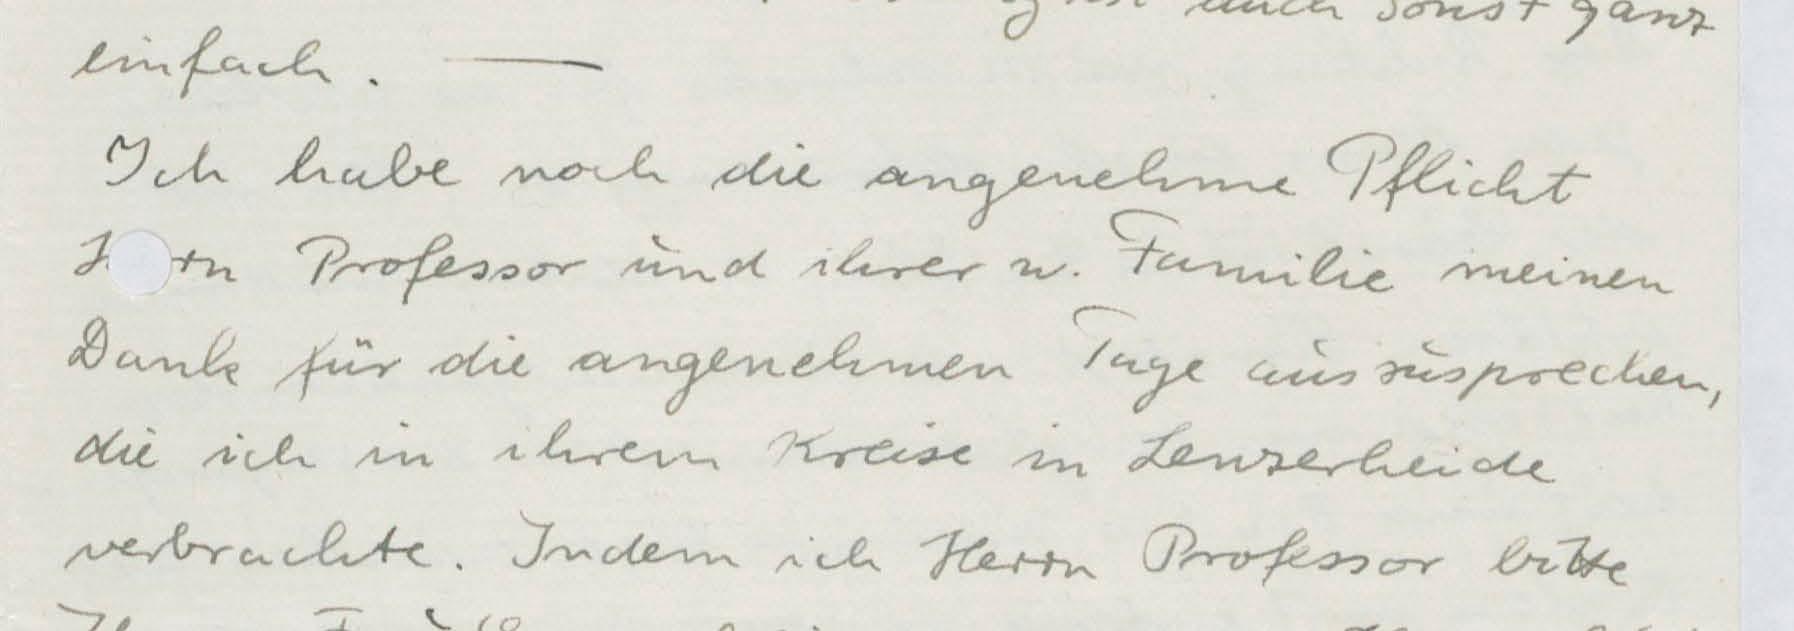 auch sonst ganz
einfach. —
Ich habe noch die angenehme Pflicht
H rn Professor und ihrer w. Familie meinen
Dank für die angenehmen Tage auszusprechen,
die ich in ihrem Kreise in Lenzerheide
verbrachte. Indem ich Herrn Professor bitte